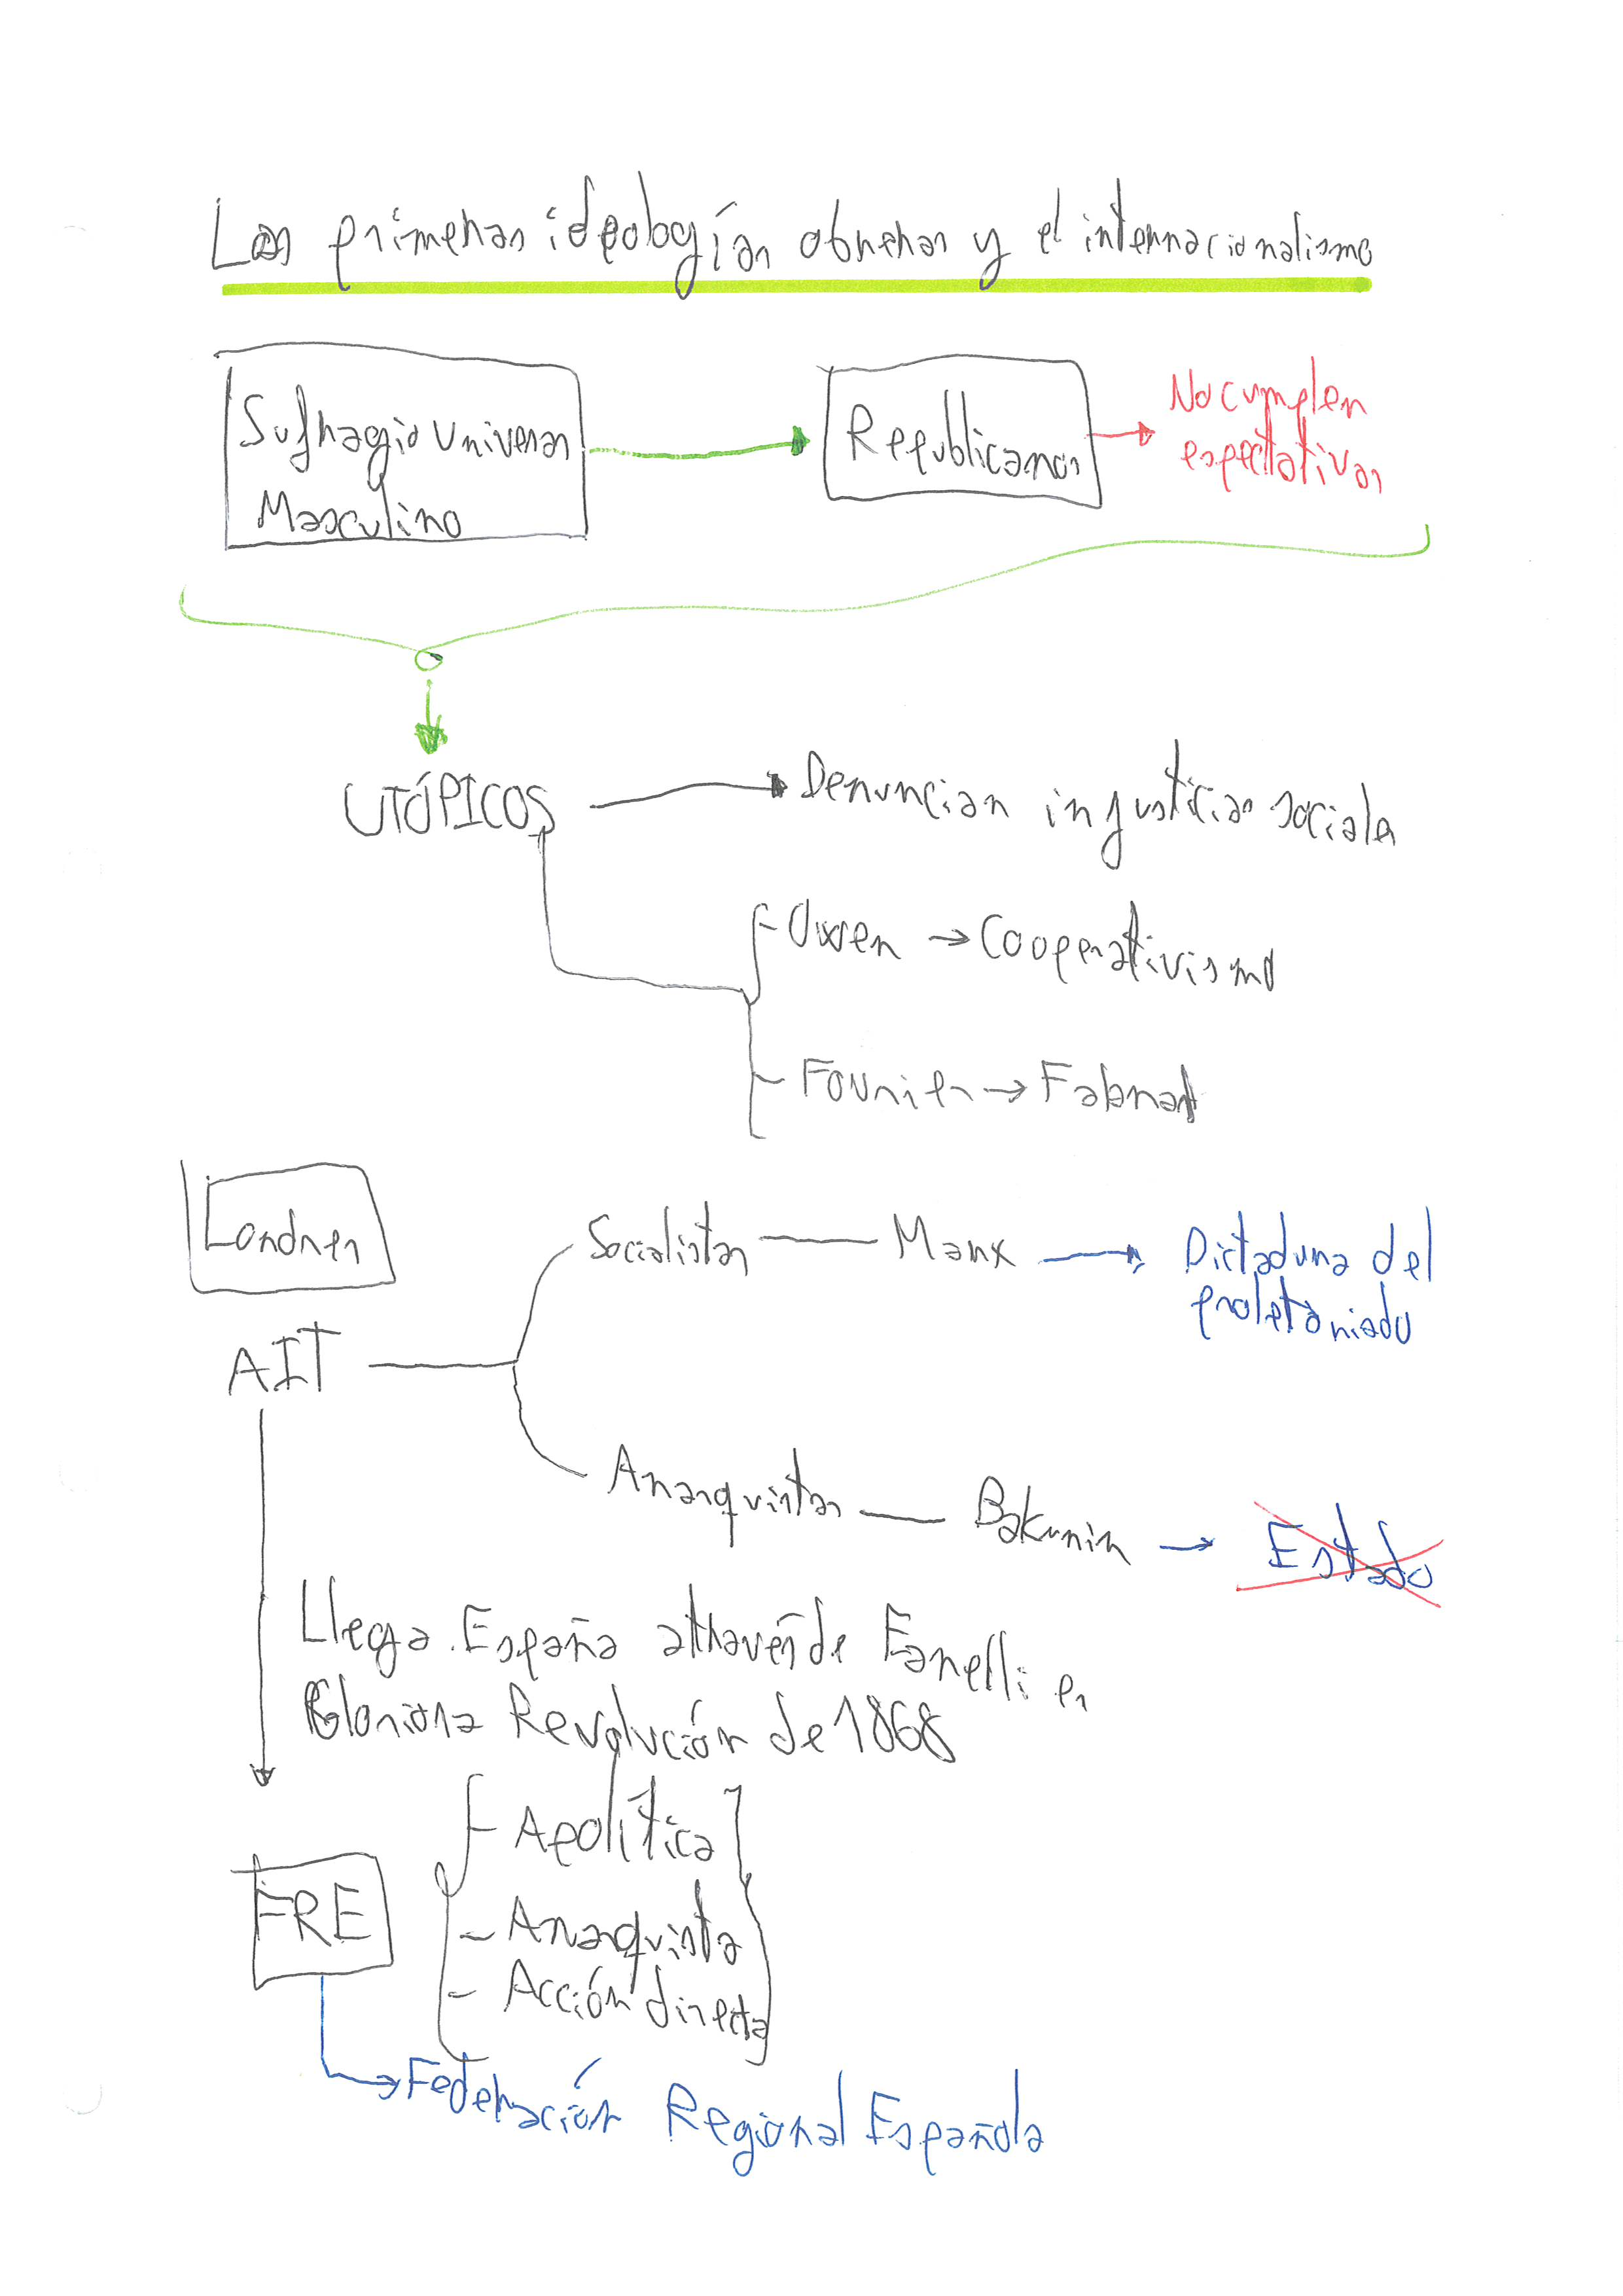 Las primeras ideologías obreras y el internacionalismo
Sufragio Universal
Masculino
Republicanos
No cumplen
expectativas
UTÓPICOS
Denuncian injusticias sociales
- Owen → Cooperativismo
- Fourier →
Londres
AIT
Socialistas — Marx → Dictadura del
proletariado
Anarquistas — Bakunin → Estado
Llega España através de Fanelli en
Gloriosa Revolución de 1868
FRE
- Apolítica
- Anarquista
- Acción directa
→ Federación Regional Española